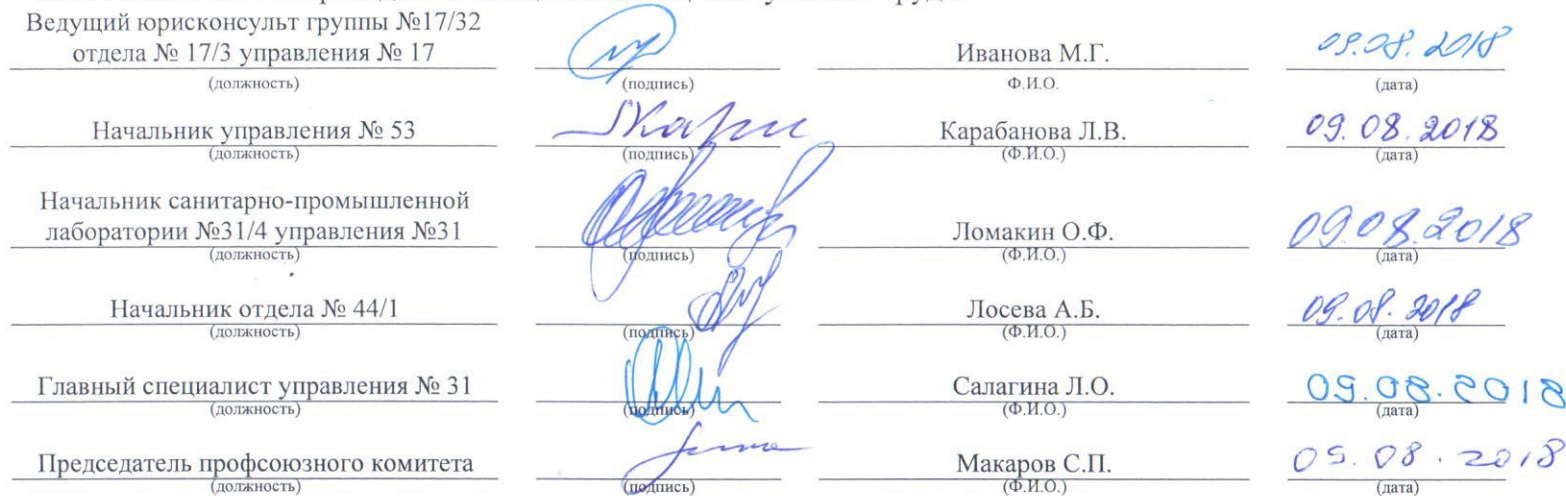 Ведущий юрисконсульт группы №17/32
отдела № 17/3 управления № 17 Иванова М.Г. 09.08.2018
(должность) (подпись) Ф.И.О. (дата)
Начальник управления № 53 Карабанова Л.В. 09.08.2018
(должность) (подпись) (Ф.И.О.) (дата)
Начальник санитарно-промышленной
лаборатории №31/4 управления №31 Ломакин О.Ф. 09.08.2018
(должность) (подпись) (Ф.И.О.) (дата)
Начальник отдела № 44/1 Лосева А.Б. 09.08.2018
(должность) (подпись) (Ф.И.О.) (дата)
Главный специалист управления № 31 Салагина Л.О. 09.08.2018
(должность) (подпись) (Ф.И.О.) (дата)
Председатель профсоюзного комитета Макаров С.П. 09.08.2018
(должность) (подпись) (Ф.И.О.) (дата)